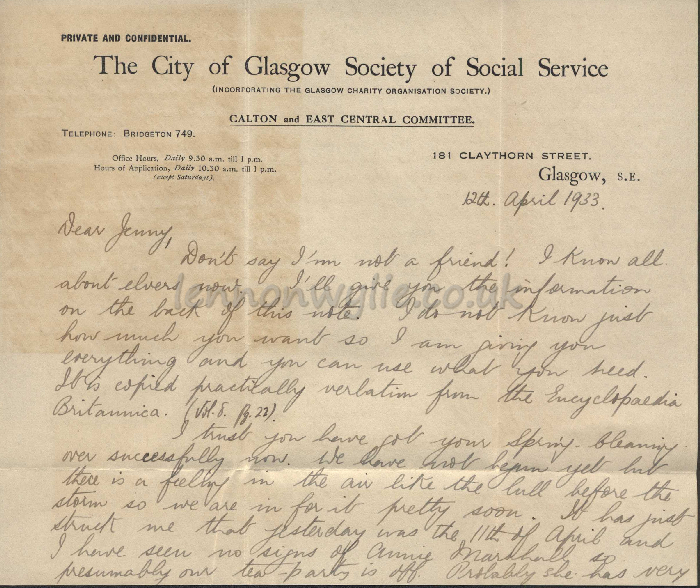 PRIVATE AND CONFIDENTIAL.
The City of Glasgow Society of Social Service
(INCORPORATING THE GLASGOW CHARITY ORGANISATION SOCIETY.)
CALTON and EAST CENTRAL COMMITTEE.
TELEPHONE: BRIDGETON 749.
Office Hours, Daily 9.30 a.m. till 1 p.m.
Hours of Application, Daily 10.30 a.m. till 1 p.m.
(except Saturdays).
181 CLAYTHORN STREET.
Glasgow, S.E.
12th. April 1933.
Dear Jenny,
Don't say I'm not a friend! I know all
about elvers now. I'll give you the information
on the back of this note. I do not know just
how much you want so I am giving you
everything and you can use what you need.
It is copied practically verbatim from the Encyclopaedia
Britannica. (Vol. 8. Pg. 22).
I trust you have got your Spring-cleaning
over successfully now. We have not begun yet but
there is a feeling in the air like the lull before the
storm so we are in for it pretty soon. It has just
struck me that yesterday was the 11th of April and
I have seen no signs of Annie Marshall so
presumably our tea party is off. Probably she has very
lennonwylie.co.uk